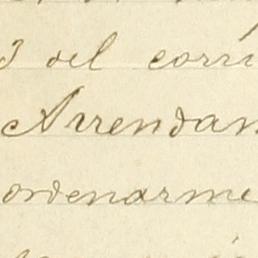 3 del corri
Arrendam
ordenarme